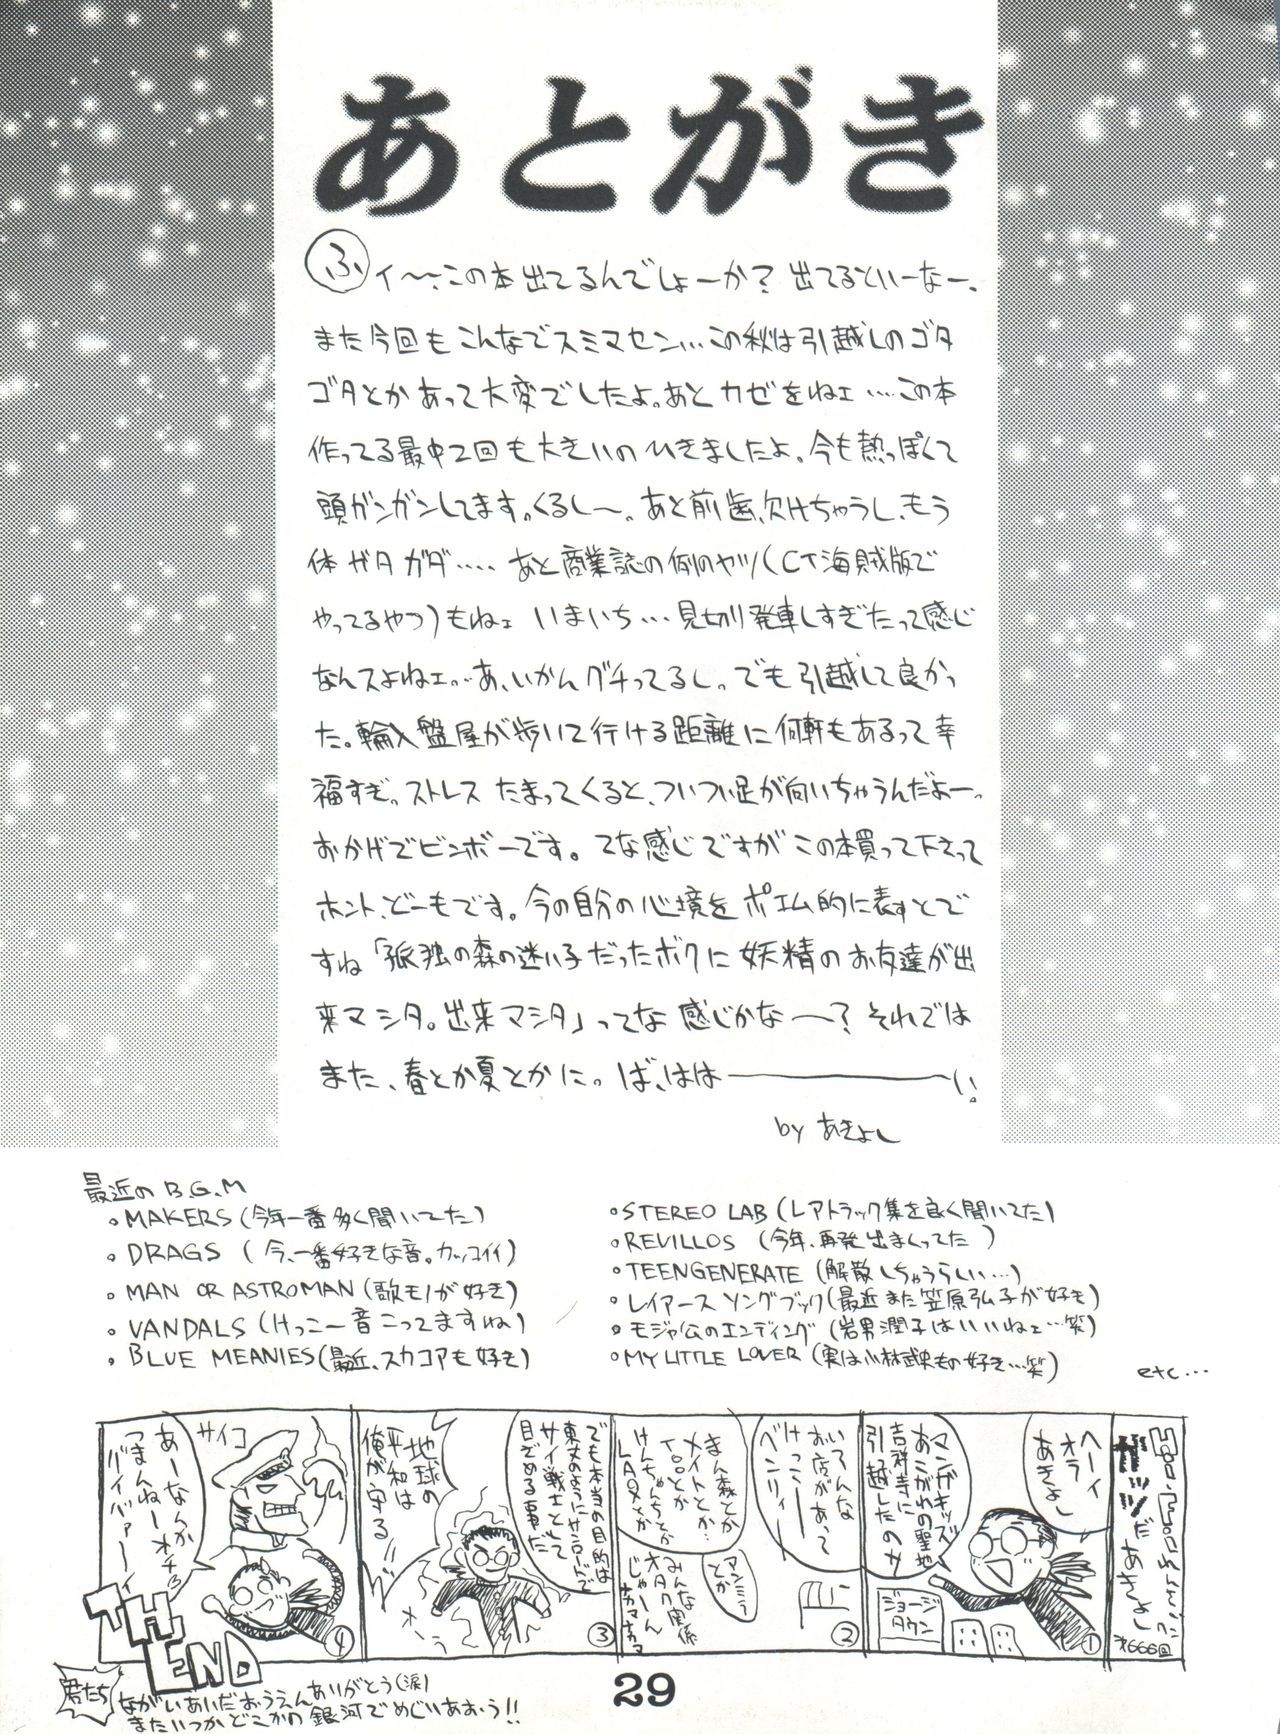 あとがき
ふィ〜、この本出てるんでしょーか？出てるといーなー、
また今回もこんなでスミマセン…この秋は引越しのゴタ
ゴタとかあって大変でしたよ。あとカゼをねェ…この本
作ってる最中2回も大きいのひきましたよ。今も熱っぽくて
頭ガンガンしてます。くるし〜。あと前歯、欠けちゃうし、もう
体ガタガダ….あと商業誌の例のヤツ(CT海賊版で
やってるやつ)もねェいまいち…見切り発車しすぎたって感じ
なんスよねェ…あ、いかんグチってるし。でも引越して良かっ
た。輸入盤屋が歩いて行ける距離に何軒もあるって幸
福すぎ。ストレスたまってくると、ついつい足が向いちゃうんだよー。
おかげでビンボーです。てな感じですがこの本買って下さって
ホント、どーもです。今の自分の心境をポエム的に表すとで
すね「孤独の森の迷い子だったボクに妖精のお友達が出
来マシタ。出来マシタ」ってな感じかな〜？それでは
また、春とか夏とかに。ば、はは―――い。
by あきよし
最近のB.G.M
•MAKERS(今年一番多く聞いてた)
•DRAGS (今、一番好きな音。カッコイイ)
•MAN OR ASTROMAN(歌モノが好き)
•VANDALS(けっこー音こってますね)
•BLUE MEANIES(最近、スカコアも好き)
•STEREO LAB(レアトラック集を良く聞いてた)
•REVILLOS (今年、再発出まくってた)
•TEENGENERATE(解散しちゃうらしい…)
•レイアースソングブック(最近また笠原弘子が好き)
•モジャ公のエンディング(岩男潤子はいいねェ…笑)
•MY LITTLE LOVER(実は小林武史もの好き…笑)
etc…
ガッツだ
あきよし
オ666回
ヘーイ
オラ
あきよし
マンガキッズ
あこがれの聖地
吉祥寺に
引越したのサ
ジョージ
タウン
①
いろんな
お店があって
けっこー
ベンリィ
まん森とか
メイトとか…
tooとか
けんちゃんちとか
LAOXとか
アンミラ
とか
みんな
オタク関係
じゃーん
ナカマナカマ
②
でも本当の目的は
東丈のように吉祥寺で
サイ戦士として
目ざめる事だ
地球の
平和は
俺が守る!!
③
サイコ
あーなんか
つまんねーオチ
バイバァーイ
④
THE END
君たち
ながいあいだおうえんありがとう(涙)
またいつかどこかの銀河でめぐりあおう!!
29